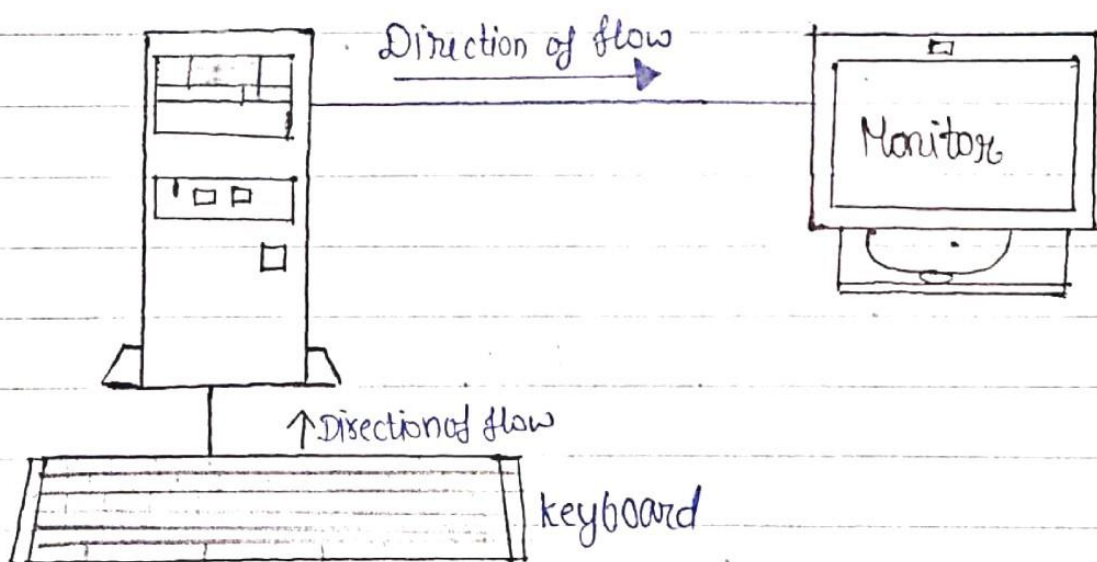 Direction of flow
Monitor
Direction of flow
keyboard